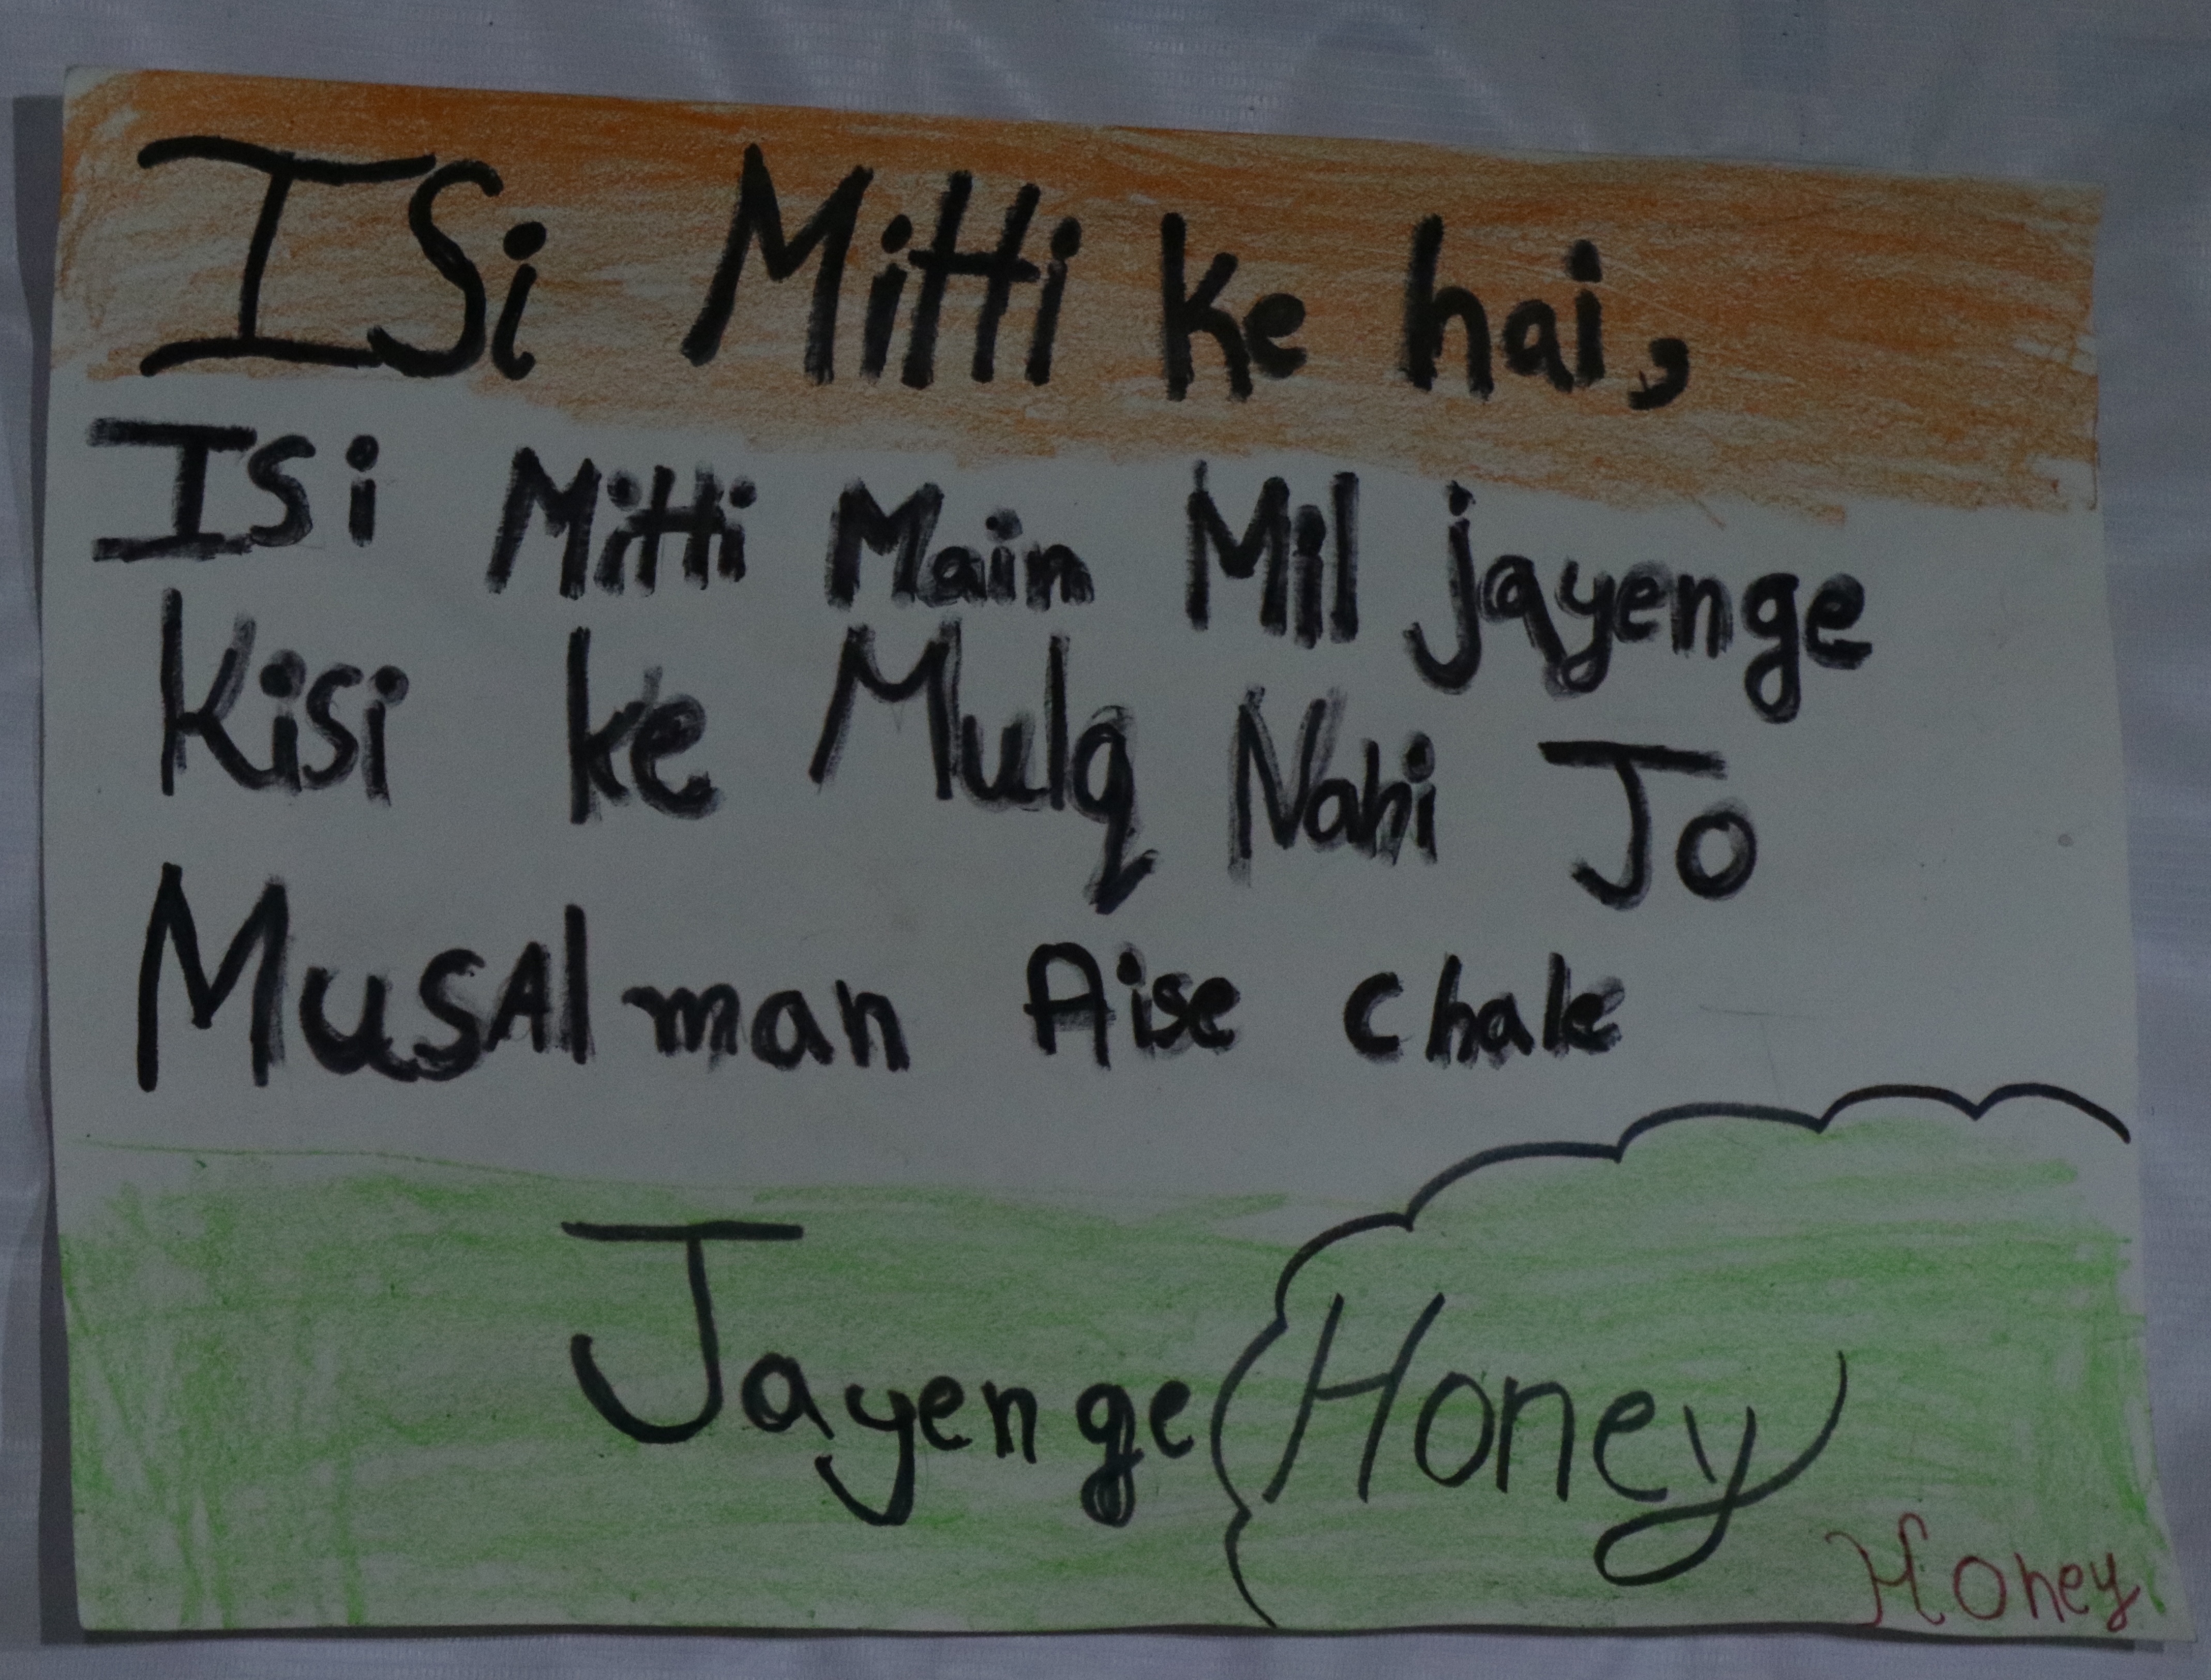 ISi Mitti ke hai,
ISi Mitti Main Mil jayenge
Kisi ke Mulq Nahi Jo
MusAlman Aise chale
Jayenge Honey
Honey